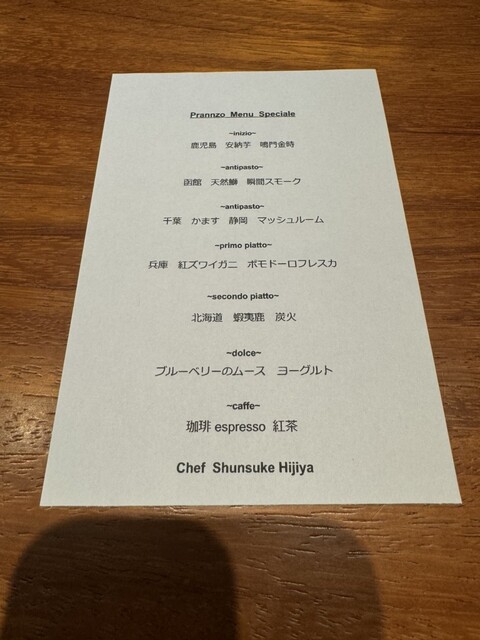 Prannzo Menu Speciale
~inizio~
鹿児島 安納芋 鳴門金時
~antipasto~
函館 天然鰤 瞬間スモーク
~antipasto~
千葉 かます 静岡 マッシュルーム
~primo piatto~
兵庫 紅ズワイガニ ポモドーロフレスカ
~secondo piatto~
北海道 蝦夷鹿 炭火
~dolce~
ブルーベリーのムース ヨーグルト
~caffe~
珈琲 espresso 紅茶
Chef Shunsuke Hijiya